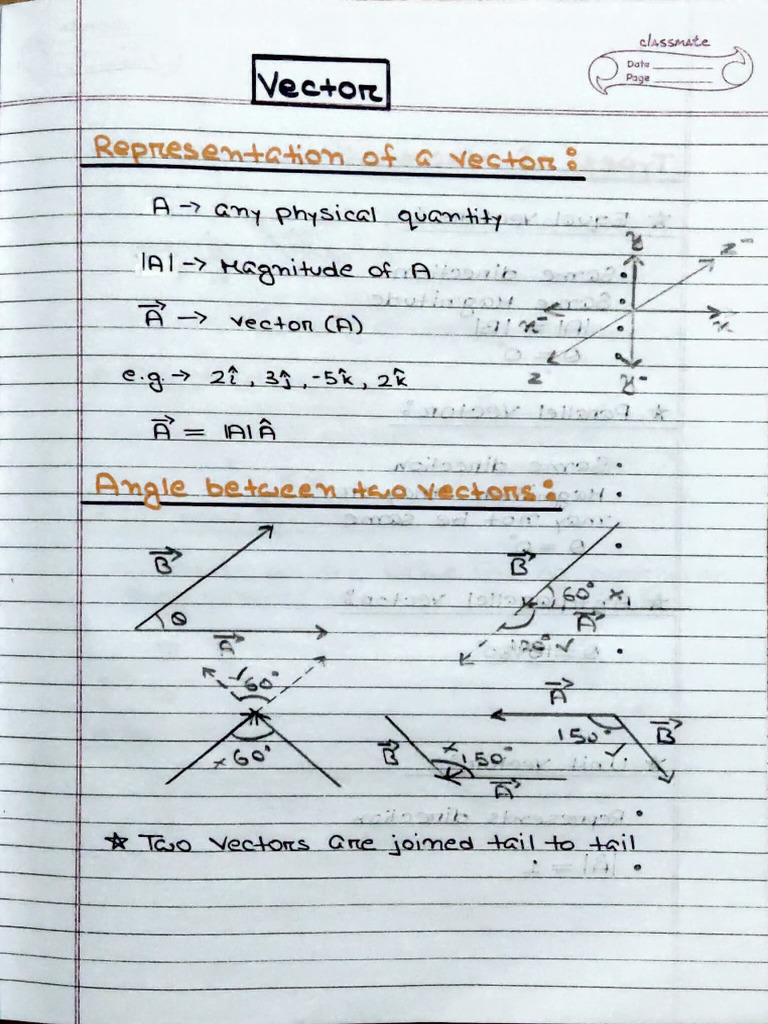 classmate
Date
Page
Vector
Representation of a vector:
A → any physical quantity
|A| → Magnitude of A
A⃗ → vector (A)
e.g. → 2î, 3ĵ, -5k̂, 2k̂
A⃗ = |A|Â
y
z⁻
x⁻
x
z
y⁻
Angle between two vectors:
B⃗
θ
B⃗
60° ×
A⃗
✓
✓60°
×60°
B⃗
×
150°
A⃗
A⃗
150°
✓
B⃗
☆ Two vectors are joined tail to tail